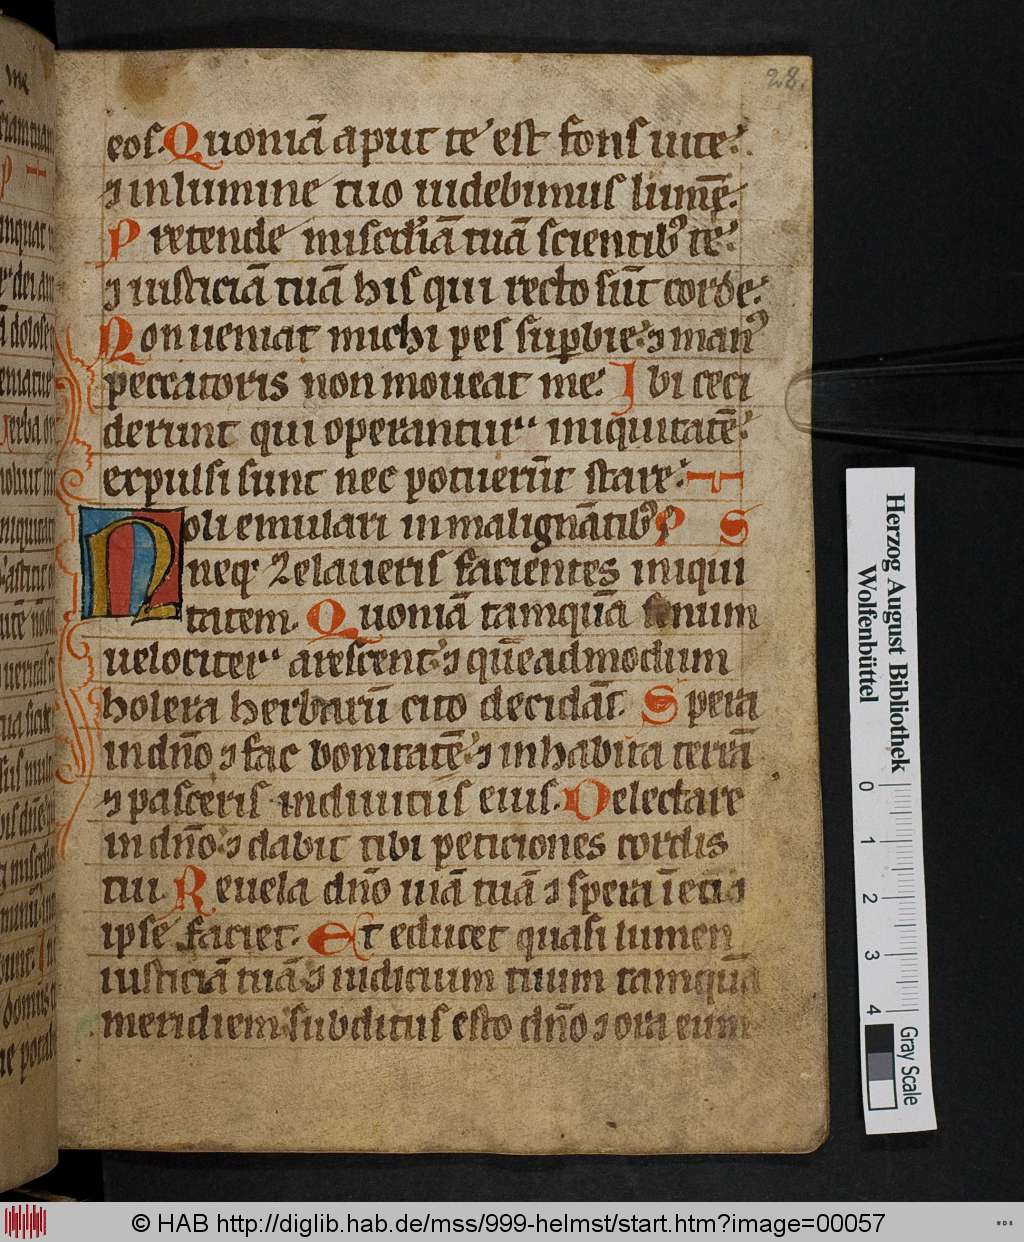 28.
eos. Quoniā aput te est fons uite.
⁊ in lumine tuo uidebimus lumē.
Pretende misc̄diā tuā scientibꝰ te.
⁊ iusticiā tuā his qui recto sūt corde.
Non ueniat michi pes suꝑbie. ⁊ manꝰ
peccatoris non moueat me. Ibi ceci
derunt qui operantur iniquitatē.
expulsi sunt nec potuerūt stare.
Noli emulari in malignātibꝰ P S
neqꝫ zelaueris facientes iniqui
tatem. Quoniā tamquā fenum
uelociter arescent. ⁊ quēadmodum
holera herbarū cito decidāt. Spera
in dn̄o ⁊ fac bonitatē. ⁊ inhabita terrā
⁊ pasceris in diuitiis eius. Delectare
in dn̄o. ⁊ dabit tibi peticiones cordis
tui. Reuela dn̄o uiā tuā ⁊ spera ī eū ⁊
ipse faciet. Et educet quasi lumen
iusticiā tuā. ⁊ iudicium tuum tamquā
meridiem subditus esto dn̄o ⁊ ora eum
Herzog August Bibliothek
Wolfenbüttel
0 1 2 3 4
Gray Scale
© HAB http://diglib.hab.de/mss/999-helmst/start.htm?image=00057